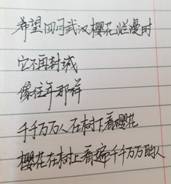 希望四月武汉樱花烂漫时
它不再封城
像往年那样
千千万万人在树下看樱花
樱花在树上看着千千万万的人